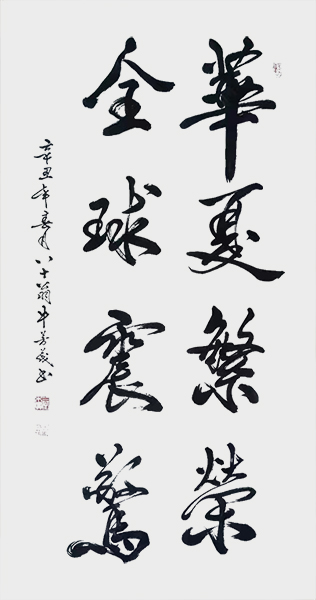 華夏繁榮
全球震驚
辛丑年春月八十翁牛芳義书